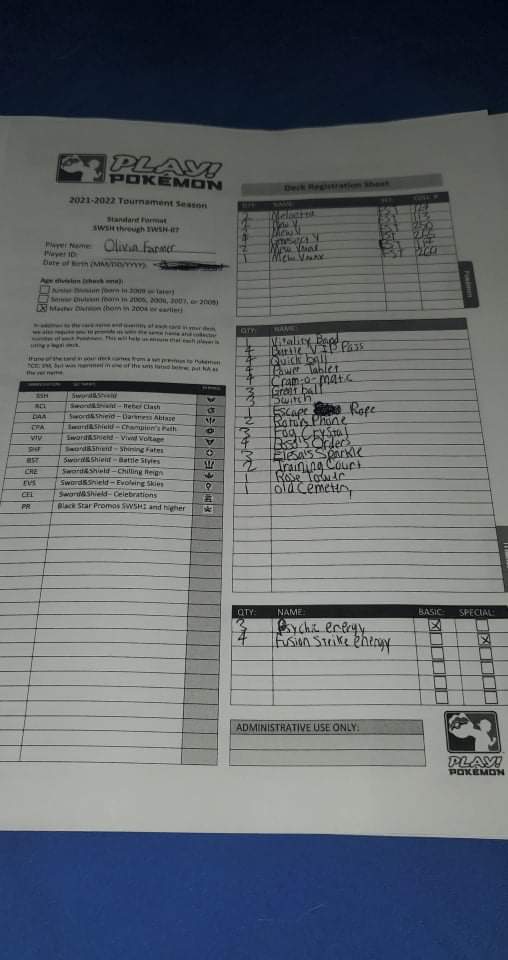 PLAY!
POKÉMON
2021-2022 Tournament Season
Standard Format
SWSH through SWSH-07
Player Name: Olivia Farmer
Player ID:
Date of Birth (MM/DD/YYYY):
Age division (check one):
Junior Division (born in 2009 or later)
Senior Division (born in 2005, 2006, 2007, or 2008)
Master Division (born in 2004 or earlier)
In addition to the card name and quantity of each card in your deck,
we also require you to provide us with the same name and collector
number of each Pokémon. This will help us ensure that each player is
using a legal deck.
If one of the card in your deck comes from a set previous to Pokémon
but was reprinted in one of the sets listed below, put NA as
the set name.
SSH Sword&Shield
RCL Sword&Shield – Rebel Clash
DAA Sword&Shield – Darkness Ablaze
CPA Sword&Shield – Champion's Path
VIV Sword&Shield – Vivid Voltage
SHF Sword&Shield – Shining Fates
BST Sword&Shield – Battle Styles
CRE Sword&Shield – Chilling Reign
EVS Sword&Shield – Evolving Skies
CEL Sword&Shield– Celebrations
PR Black Star Promos SWSH1 and higher
Deck Registration Sheet
QTY: NAME: SET: COLL #
Meloetta
Mew V
Mew V
Genesect V
Mew Vmax
1 Mew Vmax FST
Pokémon
QTY: NAME:
1 Vitality Band
4 Battle V.I.P Pass
4 Quick ball
4 Power Tablet
4 Cram-o-matic
3 Great ball
3 Switch
1 Escape Rope
2 Rotom Phone
3 Fog Crystal
4 Boss's Orders
3 Elesa's Sparkle
2 Training Court
1 Rose Tower
1 Old Cemetery
QTY: NAME: BASIC: SPECIAL:
3 Psychic energy
4 Fusion Strike energy
ADMINISTRATIVE USE ONLY:
PLAY!
POKÉMON